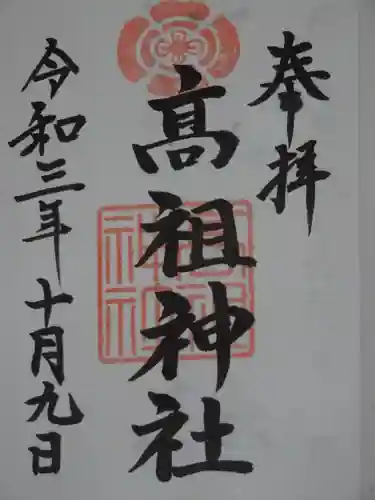 奉拝
高祖神社
令和三年十月九日